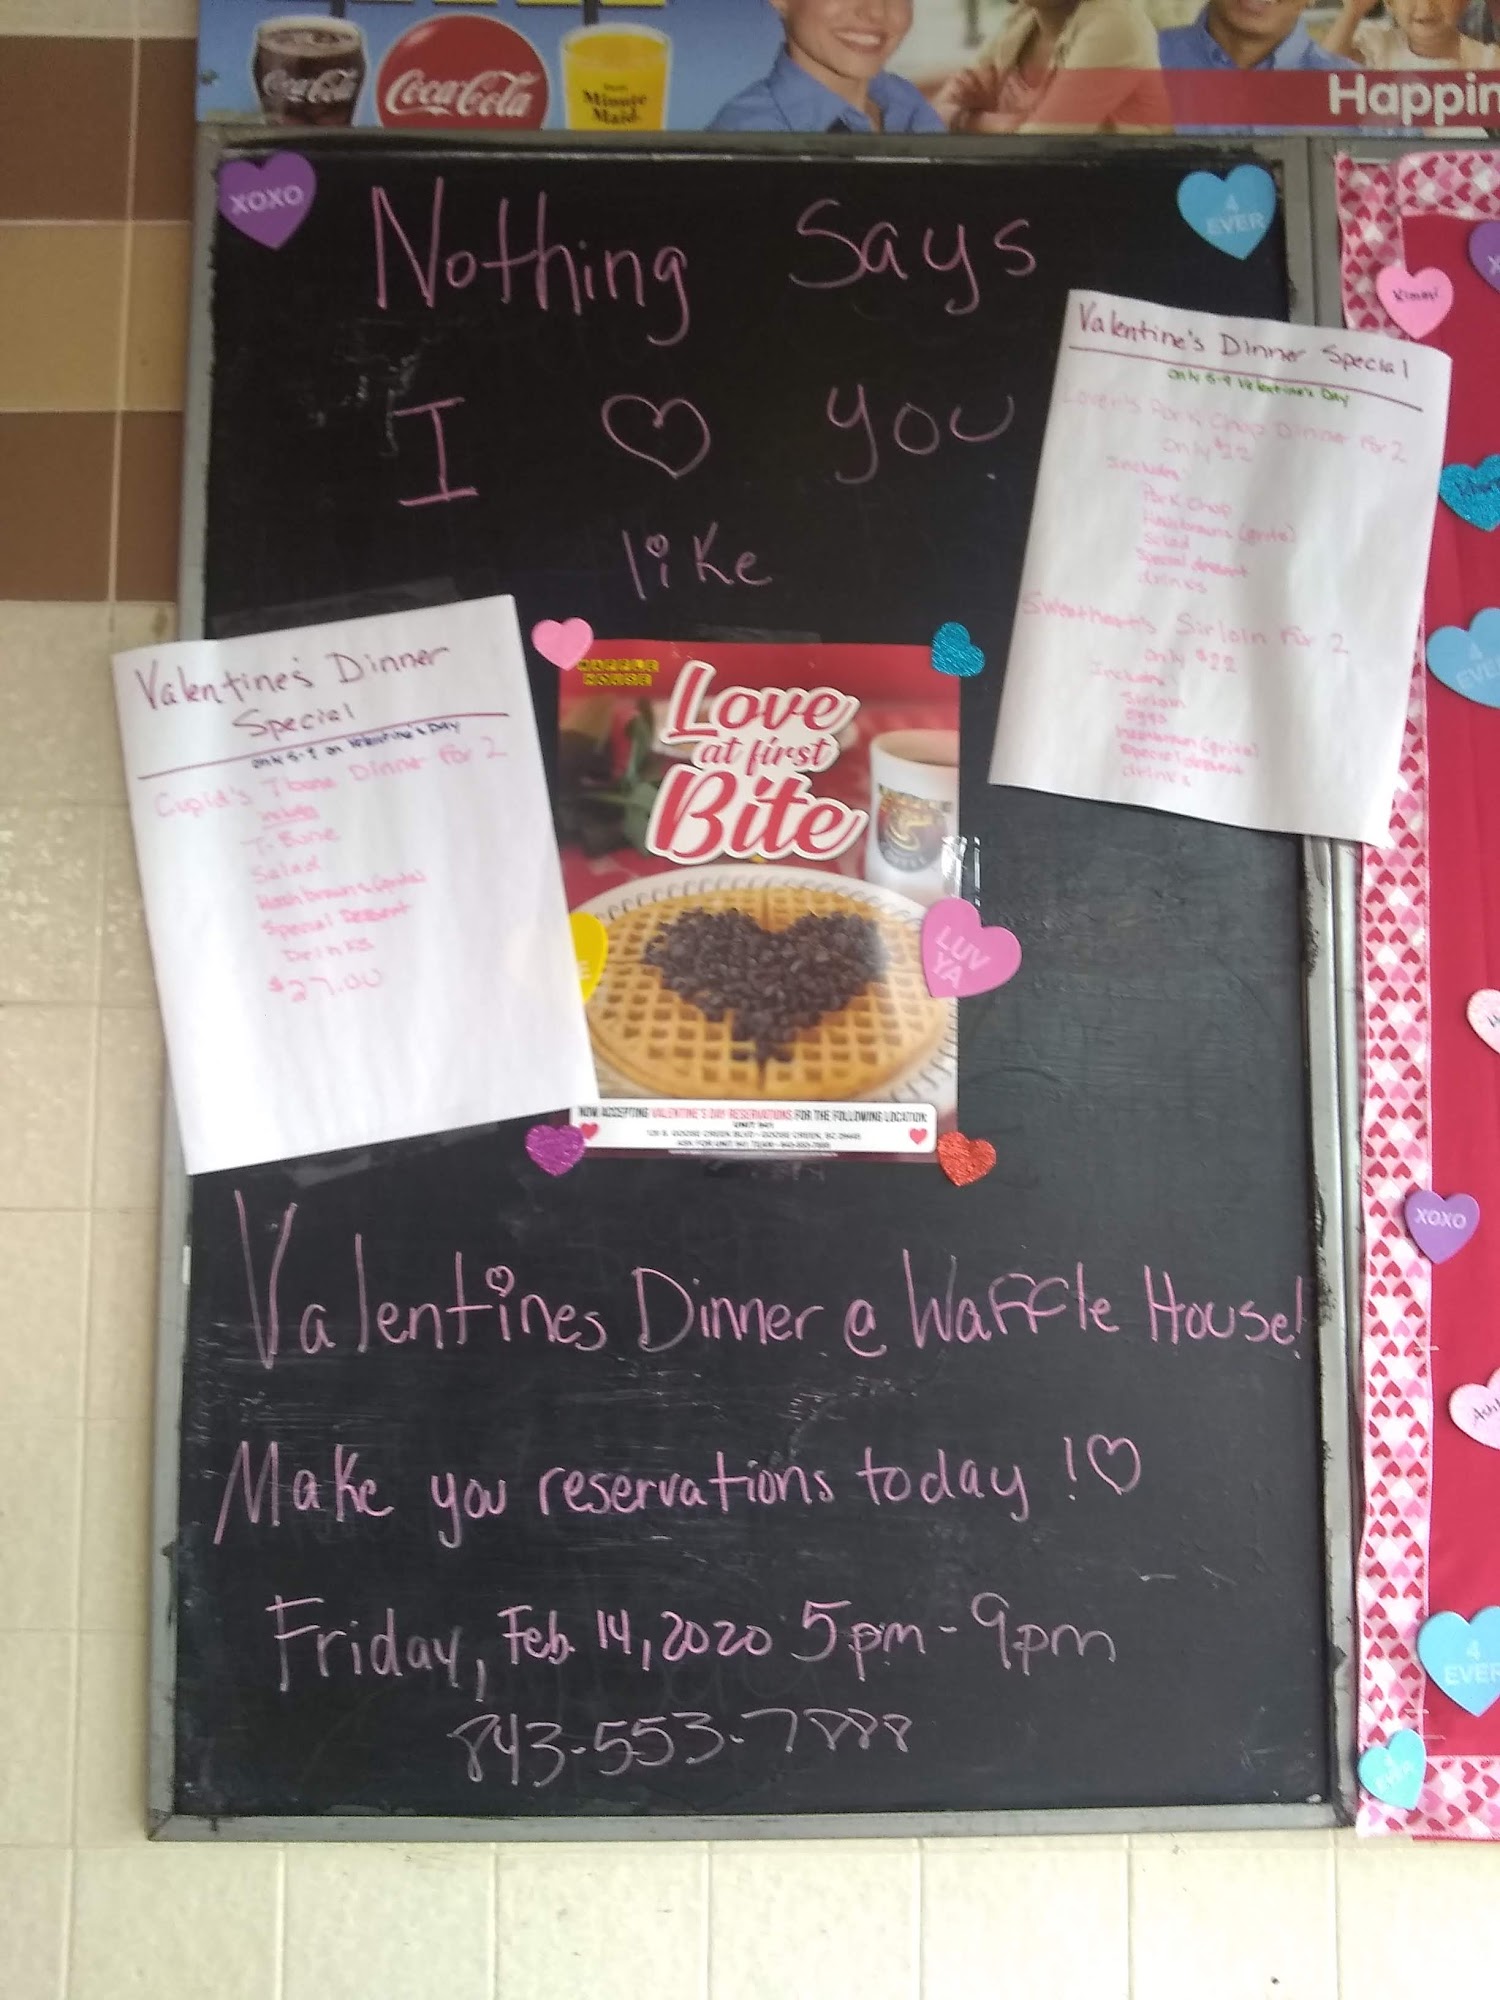 Coca-Cola
Coca-Cola
Minute
Maid
Happin
XOXO
4
EVER
Nothing Says
I ♡ you
like
Valentine's Dinner Special
only 5-9 Valentine's Day
Lover's Pork Chop Dinner For 2
only $22
Includes:
Pork Chop
Hashbrowns (grits)
Salad
Special dessert
drinks
Sweetheart's Sirloin For 2
only $22
Includes:
Sirloin
Eggs
hashbrown (grits)
special dessert
drinks
Valentine's Dinner
Special
only 5-9 on Valentine's Day
Cupid's T bone Dinner For 2
includes
T-Bone
Salad
Hashbrowns (grits)
Special Dessert
Drinks
$27.00
WAFFLE
HOUSE
Love
at first
Bite
LUV
YA
NOW ACCEPTING VALENTINE'S DAY RESERVATIONS FOR THE FOLLOWING LOCATION
UNIT 941
Valentines Dinner @ Waffle House!
Make you reservations today! ♡
Friday, Feb. 14, 2020 5pm-9pm
843-553-7888
Kimani
4
EVER
XOXO
4
EVER
EVER